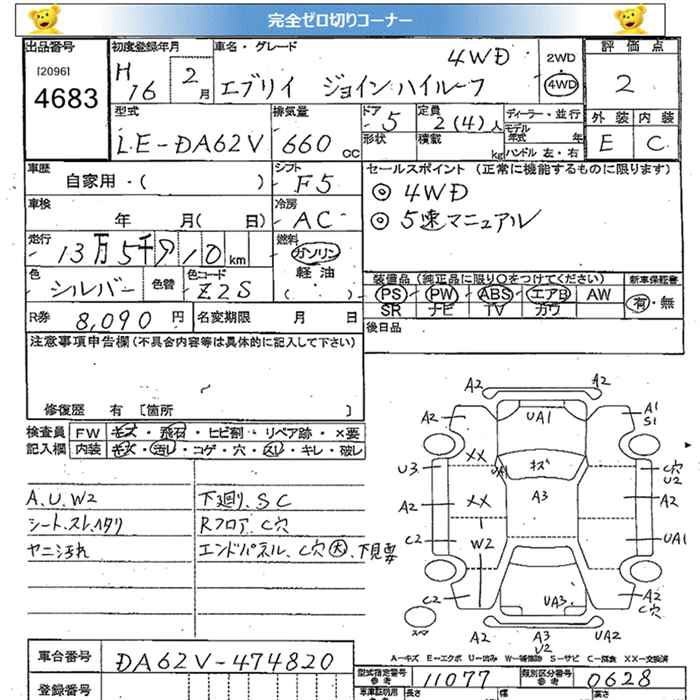 完全ゼロ切りコーナー
出品番号 初度登録年月 車名・グレード 4WD 2WD 評価点
[20961] H 16 2 月 エブリイ ジョインハイルーフ 4WD 2
4683
型式 排気量 ドア 5 定員 2(4)人 ディーラー・並行 外装 内装
LE-DA62V 660 CC 形状 積載 kg モデル年式 年 E C
ハンドル 左・右
車歴 シフト セールスポイント (正常に機能するものに限ります)
自家用・( ) F5 ◎ 4WD
車検 年 月( 日) 冷房 AC ◎ 5速マニュアル
走行 13万5千910km 燃料 ガソリン
軽油
( )
色 シルバー 色替 色コード Z2S
装備品 (純正品に限り○をつけてください) 新車保証書
PS PW ABS エアB AW 有・無
SR ナビ TV カワ
R券 8,090 円 名変期限 月 日 後日品
注意事項申告欄(不具合内容等は具体的に記入して下さい)
修復歴 有 [箇所 ]
検査員 FW キズ・飛石・ヒビ割・リペア跡・×要
記入欄 内装 キズ・汚レ・コゲ・穴・スレ・キレ・破レ
A.U.W2 下廻り.SC
シート.スレ.ハタリ Rフロア.C穴
ヤニ汚れ エンドパネル.C穴大.下見要
A2 A2
A2 UA1 A1
S1
XX UA1 キズ
U3 C穴
U2
A2 XX A3 A2
C2 W2 UA1
C2 UA3 A2
C穴
スペア A2 A3 UA2
U2
A−キズ E−エクボ U−凹み W−補修跡 S−サビ C−腐食 XX−交換済
車台番号 DA62V-474820 型式指定番号 参考 11077 類別区分番号 参考 0628
登録番号 車庫証明用 長さ 幅 高さ